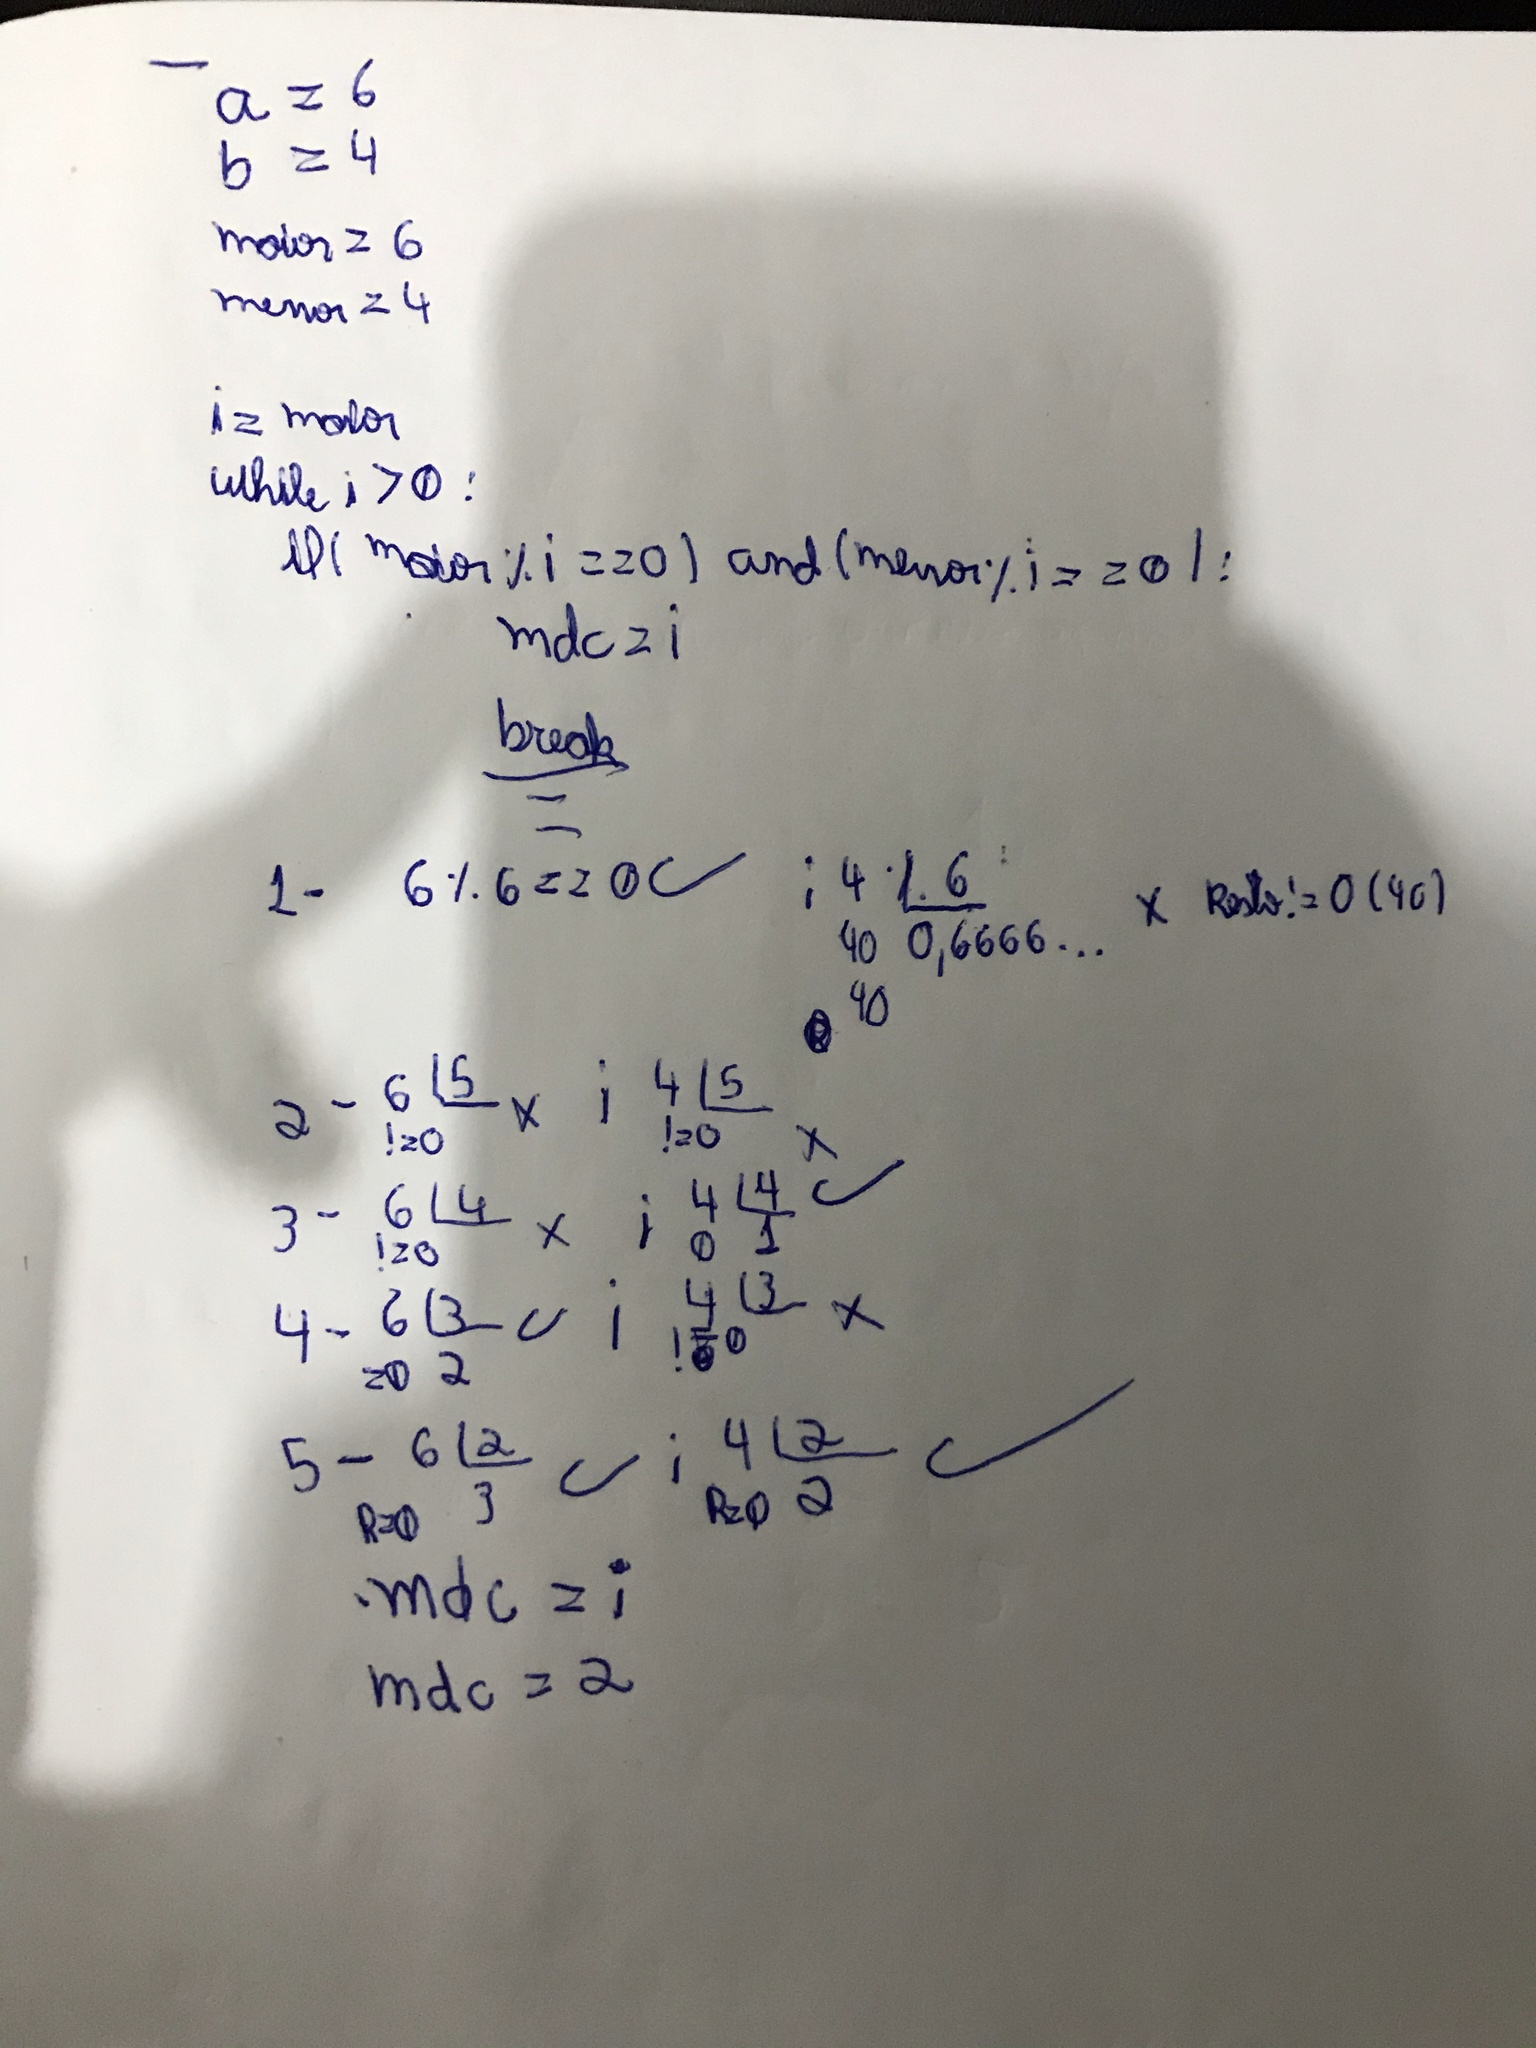 a = 6
b = 4
maior = 6
menor = 4
i = maior
while i > 0:
if (maior % i == 0) and (menor % i == 0):
mdc = i
break
1- 6 % 6 == 0 ✓ i 4 % 6 x Resto != 0 (40)
40 0,6666...
40
2- 6 5 x i 4 5 x
!=0 !=0
3- 6 4 x i 4 4 ✓
!=0 0 1
4- 6 3 ✓ i 4 3 x
=0 2 != 0
5- 6 2 ✓ i 4 2 ✓
R=0 3 R=0 2
mdc = i
mdc = 2